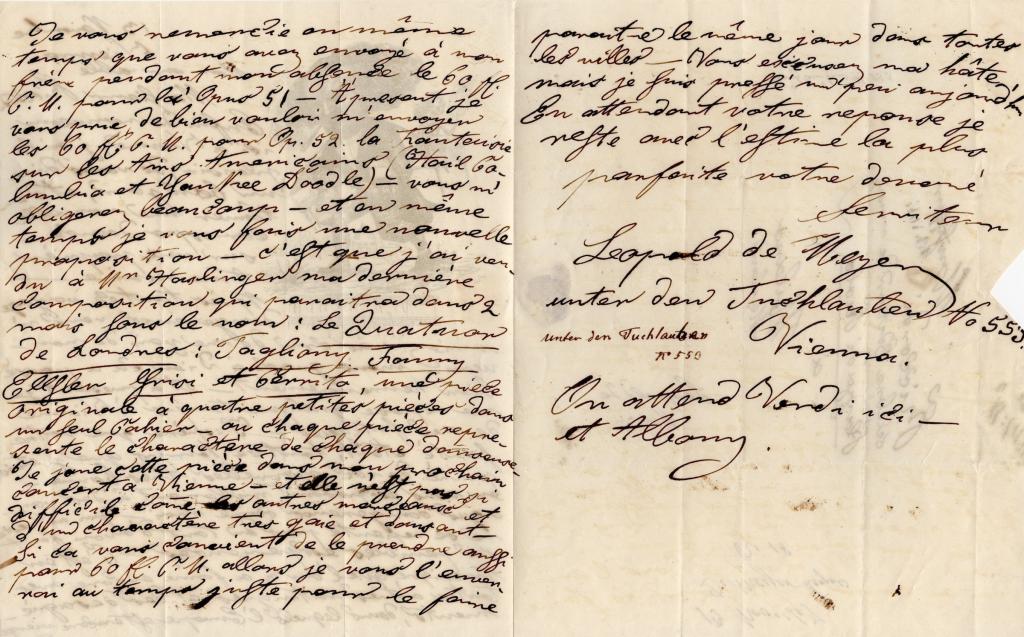 Je vous remercie en même
temps que vous avez envoyé à mon
frère pendant mon absence le 60 fl.
C. M. pour la Opus 51 — Apresent je
vous prie, de bien vouloir m'envoyer
les 60 fl. C. M. pour Op. 52 la fantaisie
sur les Airs Americains (Hail Co-
lumbia et Yankee Doodle) — vous m'
obligerez beaucoup — et en même
temps je vous fais une nouvelle
proposition — c'est que j'ai ven-
du à Mr Haslinger ma dernière
composition qui paraitra dans 2
mois sous le nom: Le Quatuor
de Londres: Tagliony Fanny
Ellsler Grisi et Cerrito, une pièce
originale à quatre petites pièces dans
un seul Cahier — ou chaque pièce repre-
sente le charactère de chaque danseuse—
Je joue cette pièce dans mon prochain
concert à Vienne — et elle n'est pas si
difficile come les autres morceaux et
d'un charactère très gaie et dansant—
Si ca vous convient de le prendre aussi
pour 60 fl. C. M. allors je vous l'enver-
rai au temps juste pour le faire
paraitre le même jour dans toutes
les villes — Vous excusez ma hâte
mais je suis pressé un peu aujourd'hui
En attendant votre reponse je
reste avec l'estime la plus
parfaite votre devoué
Serviteur
Leopold de Meyer
unter den Tuchlauben No 553.
unter den Tuchlauben
No 553
Vienna.
On attend Verdi ici —
et Albony.